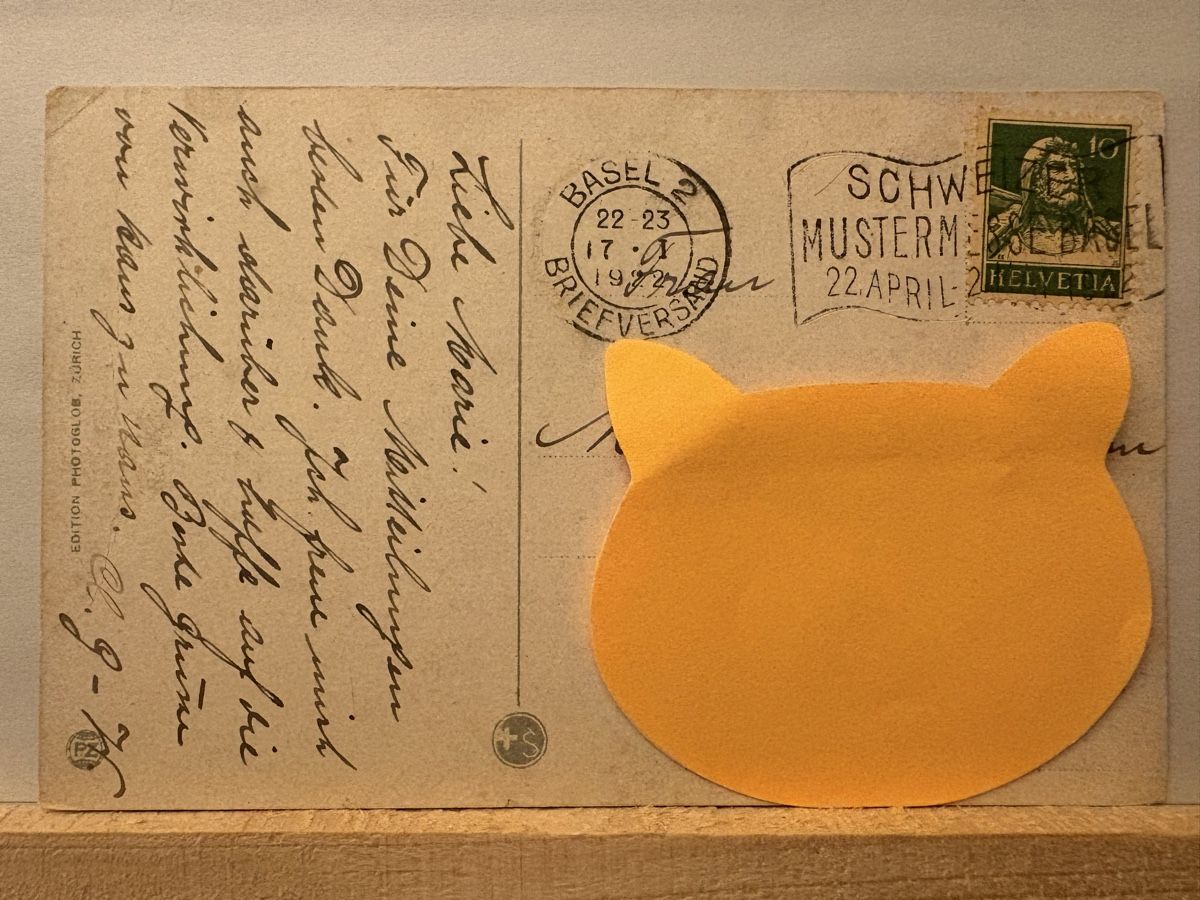 Liebe Marie!
Für Deine Mitteilungen
besten Dank. Ich freue mich
auch darüber & hoffe auf die
Verwirklichung. Beste Grüsse
von Haus zu Haus.
EDITION PHOTOGLOB, ZÜRICH
PZ
BASEL 2
22-23
17 · I
1922
BRIEFVERSAND
SCHWE
MUSTERMESSE BASEL
22. APRIL - 2
10
HELVETIA
Frau